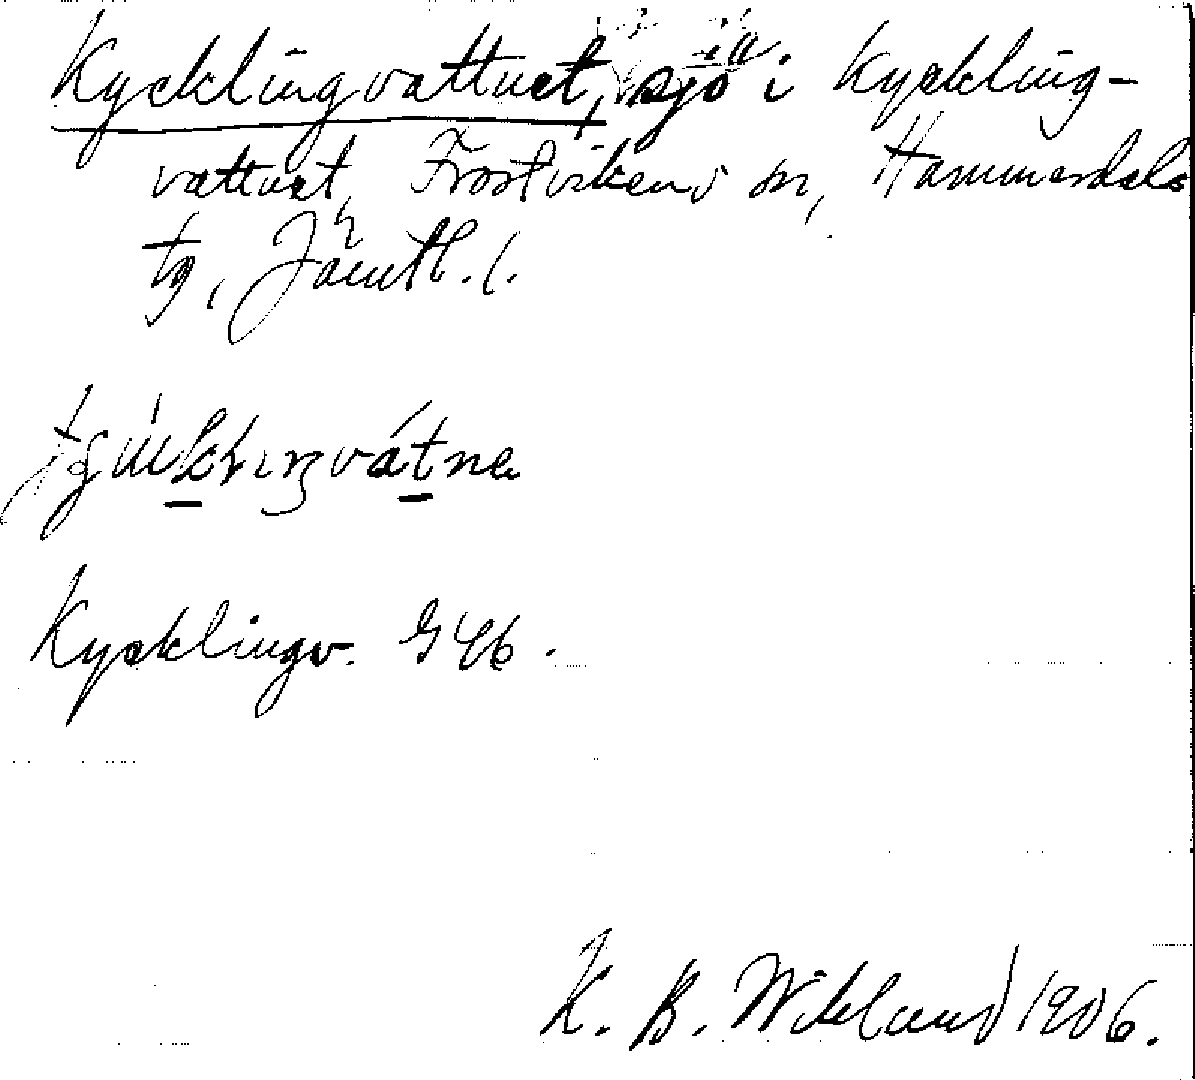 Kycklingvattnet, sjö i Kyckling-
vattnet, Frostvikens sn, Hammerdals
tg, Jämtl. l.
Kycklingv. G46.
K. B. Wiklund 1906.